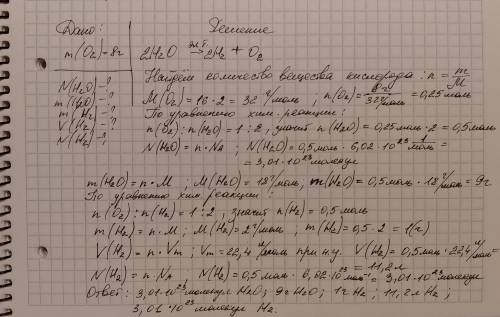 Дано:
Решение
m(O₂)=8г
2H₂O эл.т.→ 2H₂ + O₂
N(H₂O)-?
m(H₂O)-?
m(H₂)-?
V(H₂)-?
N(H₂)-?
Найдём количество вещества кислорода: n = m/M
M(O₂) = 16·2 = 32 г/моль; n(O₂) = 8г/32г/моль = 0,25 моль
По уравнению хим. реакции:
n(O₂) : n(H₂O) = 1 : 2, значит n(H₂O) = 0,25 моль · 2 = 0,5 моль
N(H₂O) = n · Nа; N(H₂O) = 0,5 моль · 6,02 · 10²³ моль⁻¹ =
= 3,01 · 10²³ молекул
m(H₂O) = n · M; M(H₂O) = 18 г/моль; m(H₂O) = 0,5 моль · 18 г/моль = 9г
По уравнению хим. реакции:
n(O₂) : n(H₂) = 1 : 2, значит n(H₂) = 0,5 моль
m(H₂) = n · M; M(H₂) = 2 г/моль; m(H₂) = 0,5 · 2 = 1(г)
V(H₂) = n · Vm; Vm = 22,4 л/моль при н.у. V(H₂) = 0,5 моль · 22,4 л/моль =
= 11,2 л
N(H₂) = n · Nа, N(H₂) = 0,5 моль · 6,02 · 10²³ моль⁻¹ = 3,01 · 10²³ молекул
Ответ: 3,01·10²³ молекул H₂O; 9г H₂O; 1г H₂; 11,2л H₂;
3,01 · 10²³ молекул H₂.